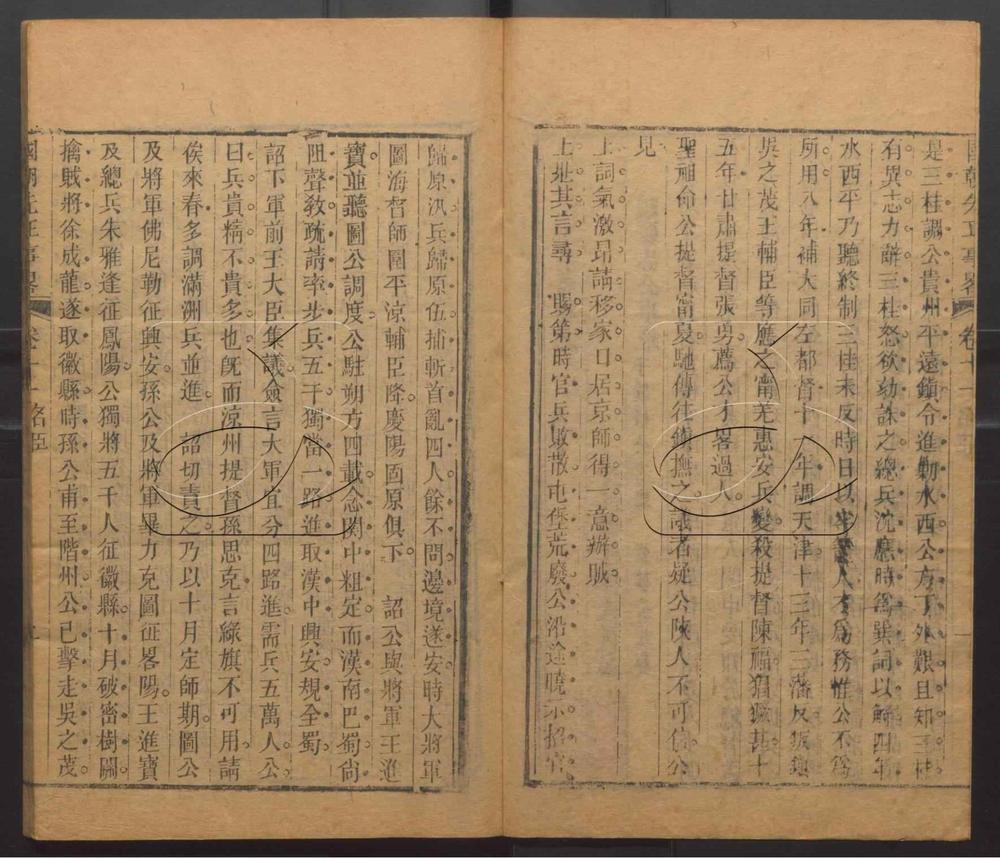 國朝先正事畧 卷十一
是三桂調公貴州平遠鎮令進勦水西公方丁外艱且知三桂
有異志力辭三桂怒欲劾誅之總兵沈應時爲巽詞以解四年
水西平乃聽終制三桂未反時日以牢籠人才爲務惟公不爲
所用八年補大同左都督十一年調天津十三年三藩反叛鎮
吳之茂王輔臣等應之甯羌惠安兵變殺提督陳福猖獗甚十
五年甘肅提督張勇薦公才畧過人
聖祖命公提督甯夏馳傳往鎮撫之議者疑公陝人不可信公
見
上詞氣激昂請移家口居京師得一意辦賊
上壯其言尋 賜第時官兵敗散屯堡荒廢公沿途曉示招官
歸原汛兵歸原伍捕斬首亂四人餘不問邊境遂安時大將軍
圖海督師圖平涼輔臣降慶陽固原俱下 詔公與將軍王進
寶並聽圖公調度公駐朔方四載念關中粗定而漢南巴蜀尚
阻聲教疏請率步兵五千獨當一路進取漢中興安規全蜀
詔下軍前王大臣集議僉言大軍宜分四路進需兵五萬人公
曰兵貴精不貴多也旣而涼州提督孫思克言綠旗不可用請
俟來春多調滿洲兵並進 詔切責之乃以十月定師期圖公
及將軍佛尼勒征興安孫公及將軍畢力克圖征畧陽王進寶
及總兵朱雅逢征鳳陽公獨將五千人征徽縣十月破密樹關
擒賊將徐成龍遂取徽縣時孫公甫至階州公已擊走吳之茂
國朝先正事畧 卷十一 名臣